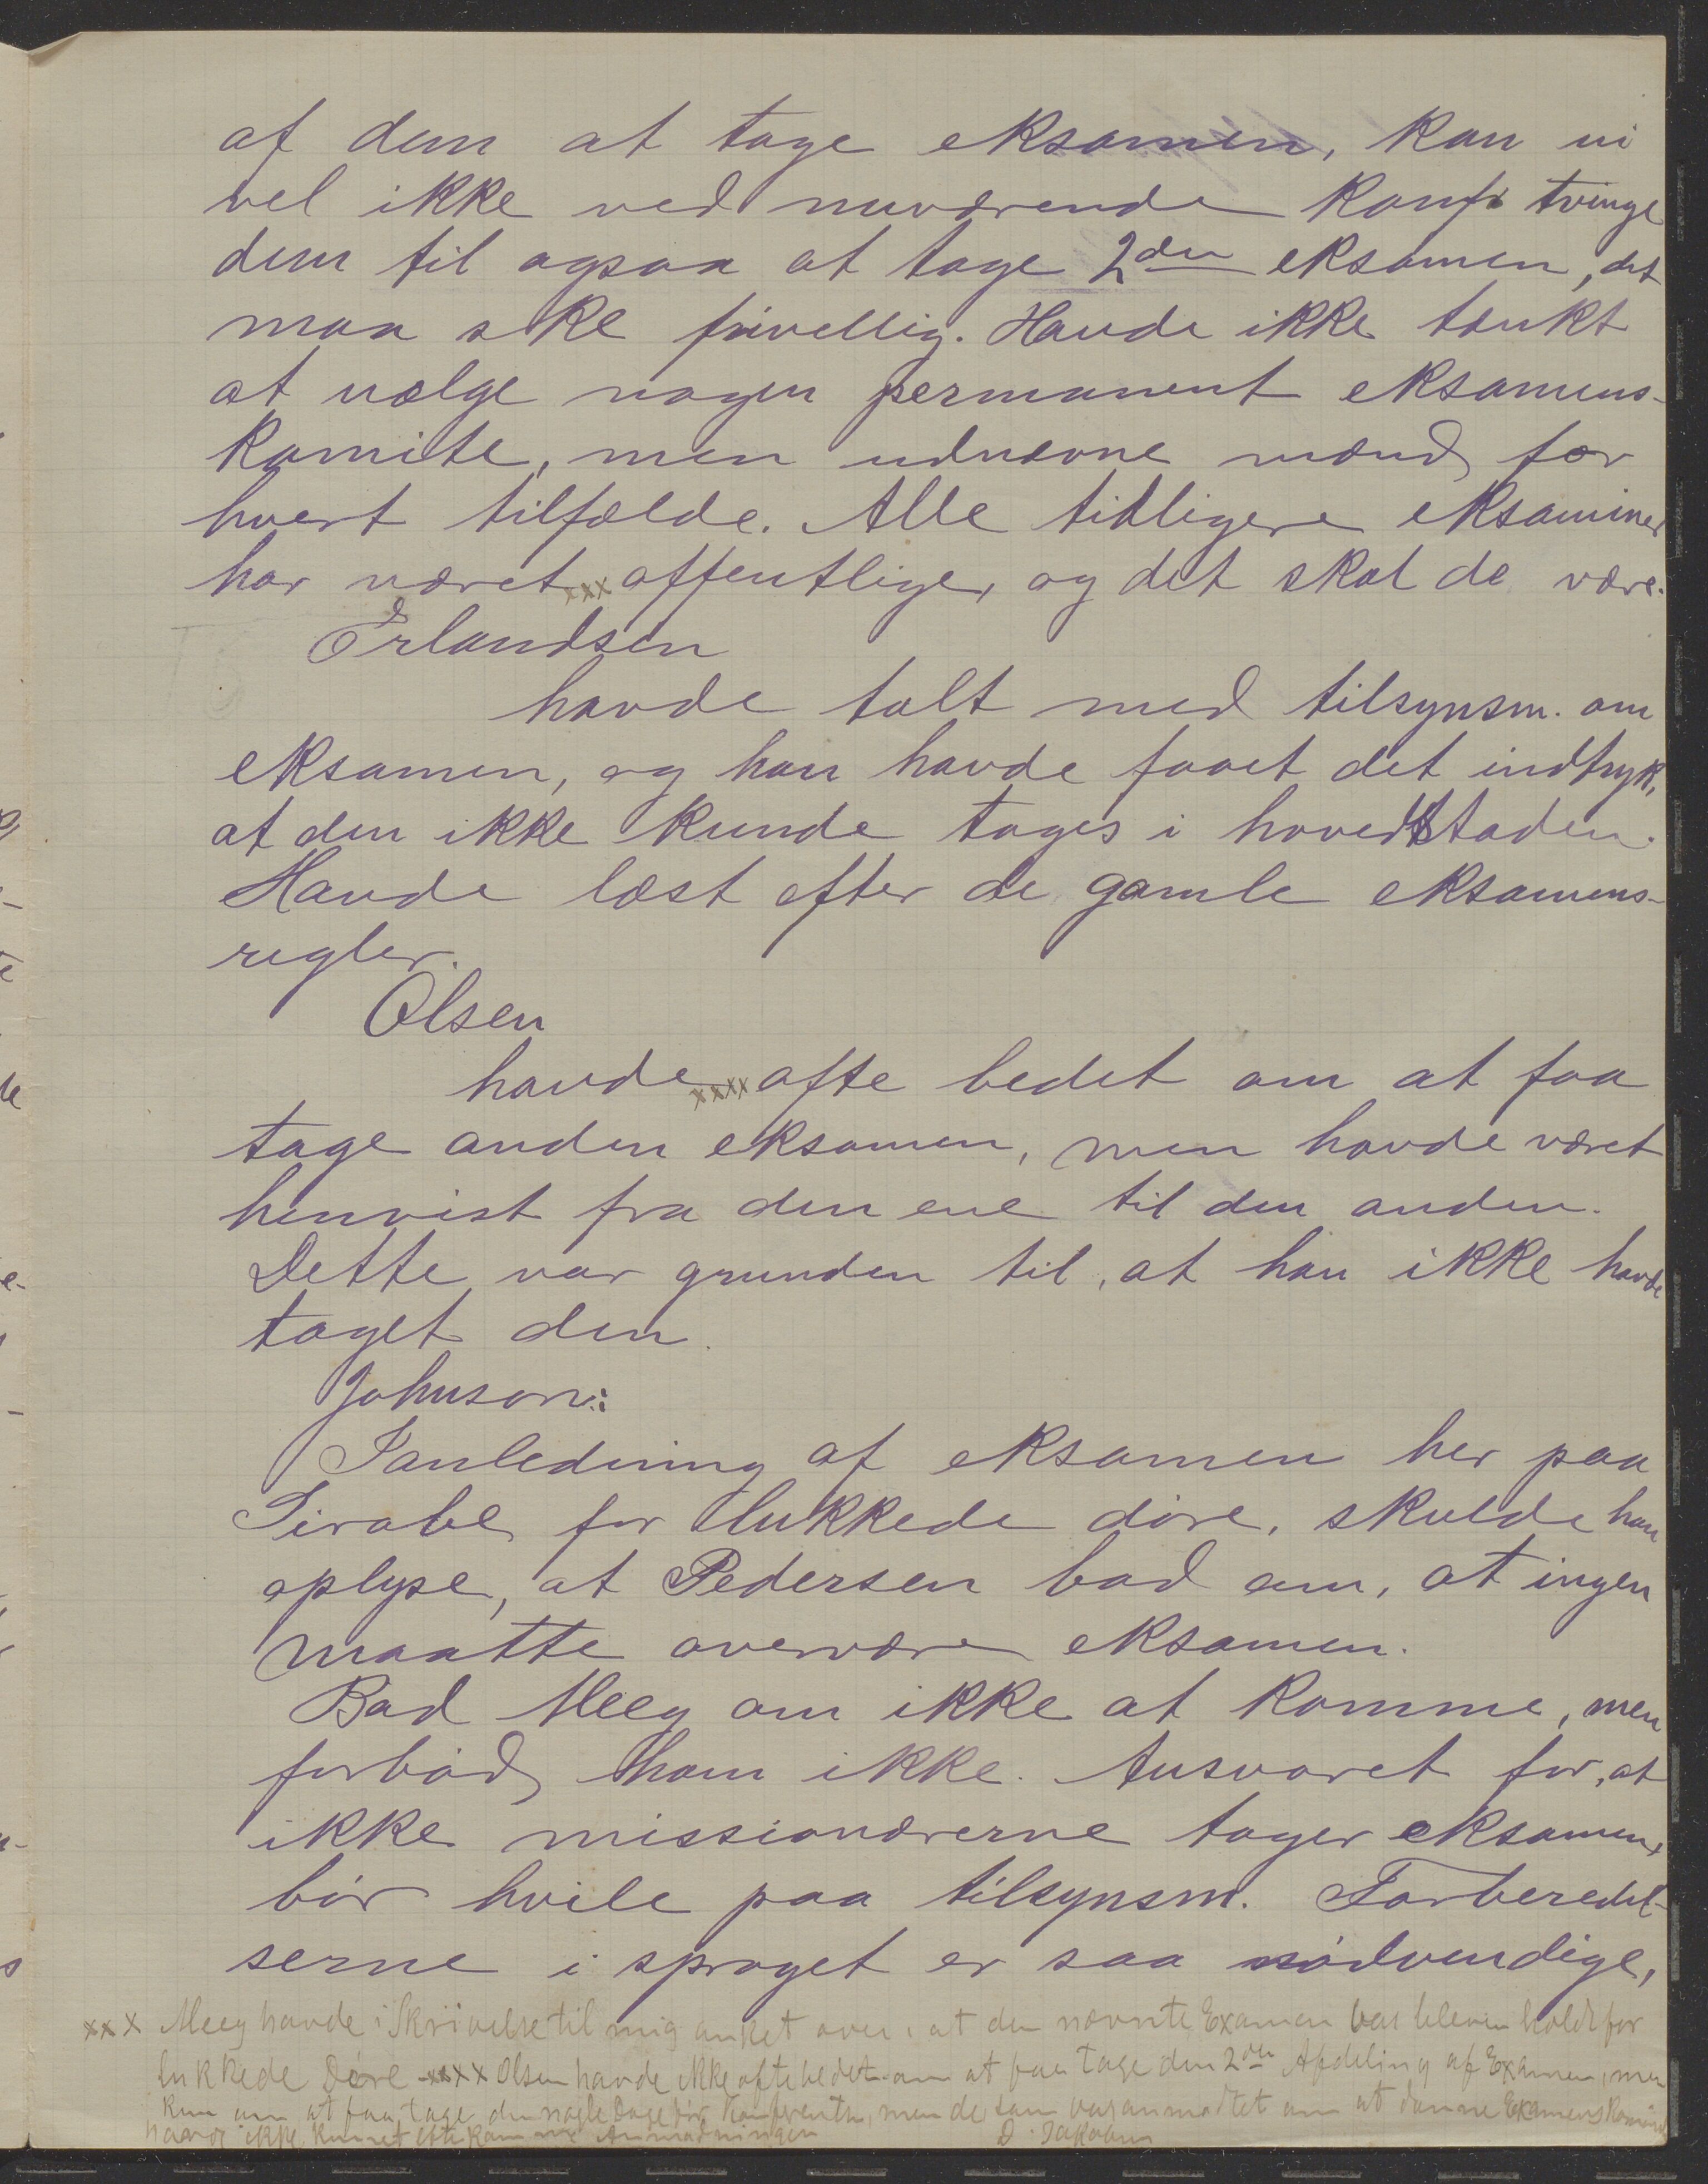 af dem at tage eksamen, kan vi
vel ikke ved nuværende konf. tvinge
dem til ogsaa at tage 2den eksamen, det
maa ske frivellig. Havde ikke tænkt
at vælge nogen permanent eksamens-
komite, men udnævne mænd for
hvert tilfælde. Alle tidligere eksaminer
har været xxx offentlige, og det skal de være.
Erlandsen
havde talt med tilsynsm. om
eksamen, og han havde faaet det indtryk,
at den ikke kunde tages i hovedstaden.
Havde læst efter de gamle eksamens-
regler.
Olsen
havde xxxx ofte bedet om at faa
tage anden eksamen, men havde været
henvist fra den ene til den anden.
Dette var grunden til, at han ikke havde
taget den.
Johnson:
I anledning af eksamen her paa
Sirabe for lukkede døre, skulde han
oplyse, at Pedersen bad om, at ingen
maatte overvære eksamen.
Bad Meeg om ikke at komme, men
forbød ham ikke. Ansvaret for, at
ikke missionærerne tager eksamen,
bør hvile paa tilsynsm. Forberedel-
serne i sproget er saa nødvendige,
xxx Meeg havde i Skrivelse til mig anket over, at den nævnte Examen var bleven holdt for
lukkede Døre xxxx Olsen havde ikke ofte bedet om at faa tage den 2den Afdeling af Examen, men
kun om at faa tage den nogle Dage før Konferentsen, men de som var anmodet om at danne Examenskomité
havde ikke kunnet efterkomme Anmodningen D. Jakobsen